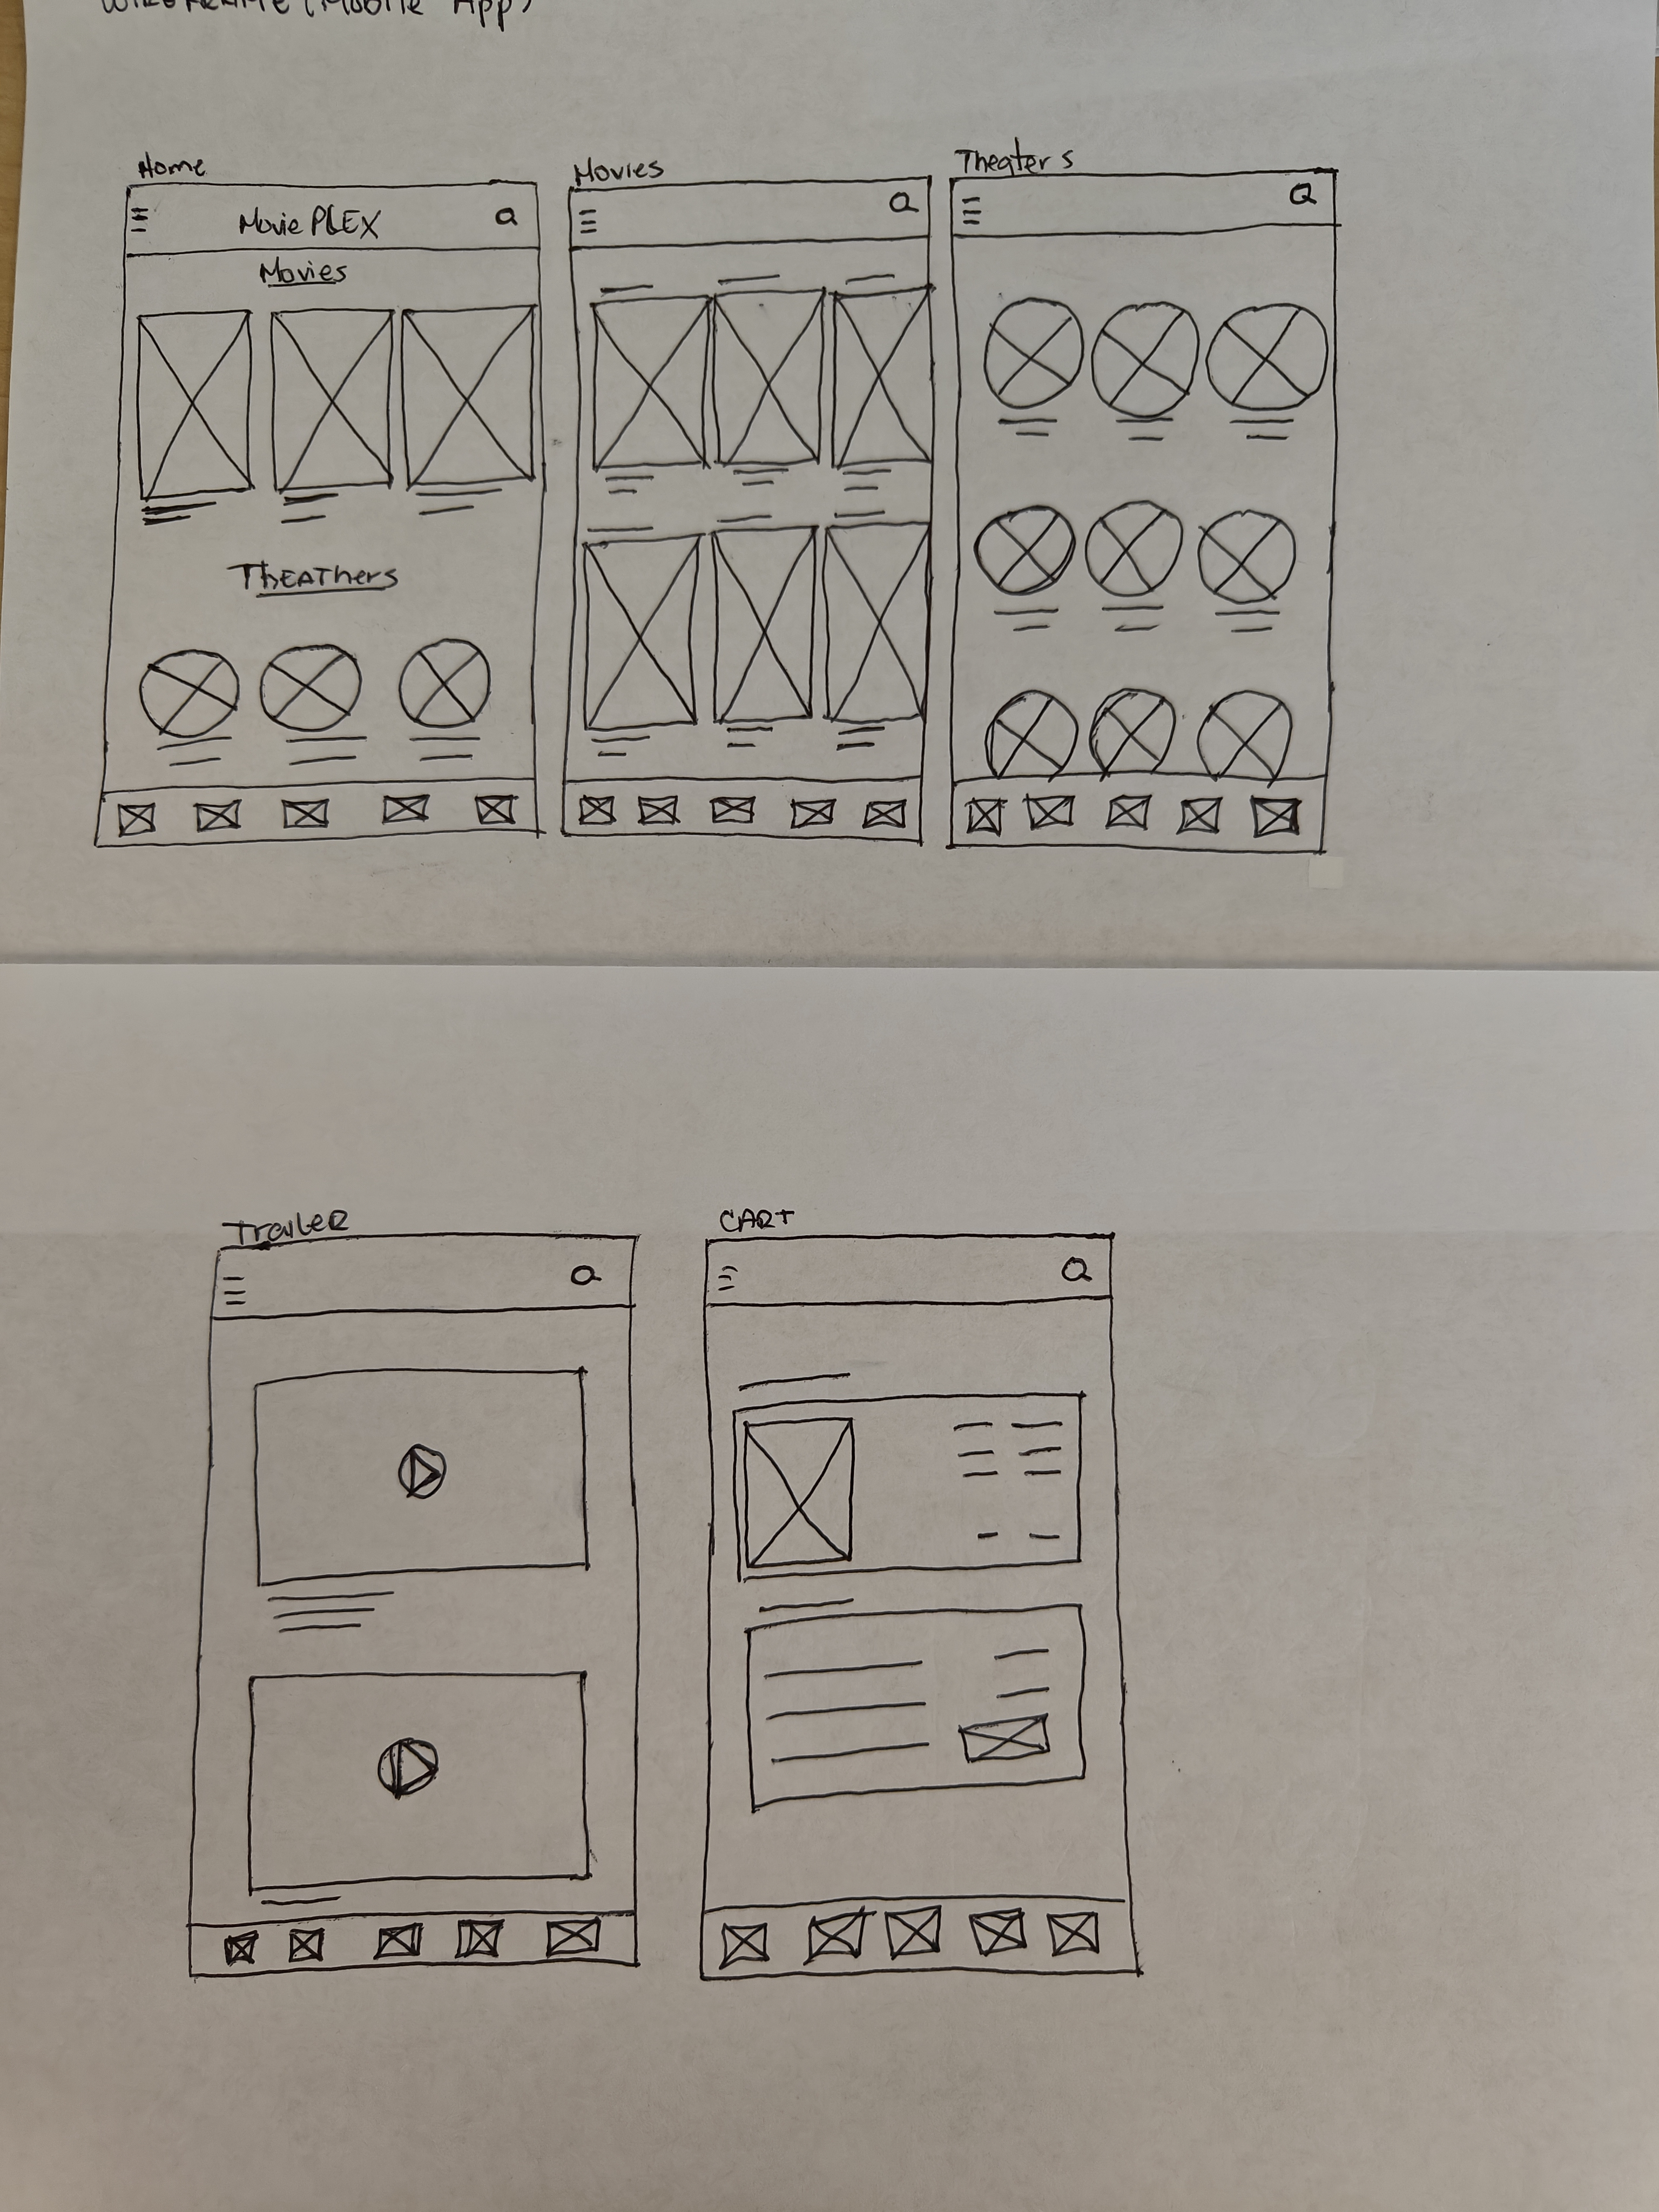 WIREFRAME (Mobile App)
Home
Movie PLEX
Movies
THEATHers
Movies
Theaters
Trailer
CART